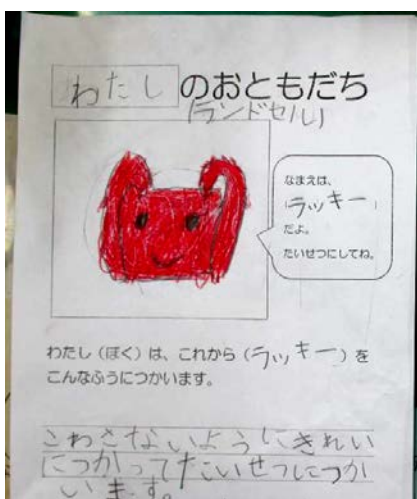 わたしのおともだち
(ランドセル)
なまえは、
(ラッキー)
だよ。
たいせつにしてね。
わたし(ぼく)は、これから(ラッキー)を
こんなふうにつかいます。
こわさないようにきれい
につかってたいせつにつか
います。